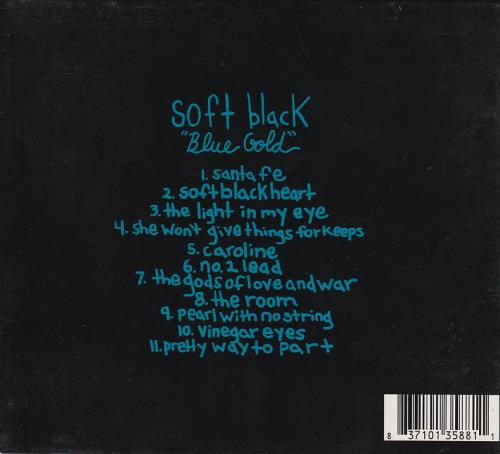 soft black
"Blue Gold"
1. santa fe
2. soft black heart
3. the light in my eye
4. she won't give things for keeps
5. caroline
6. no. 2 lead
7. the gods of love and war
8. the room
9. pearl with no string
10. vinegar eyes
11. pretty way to part
8 37101 35881 1